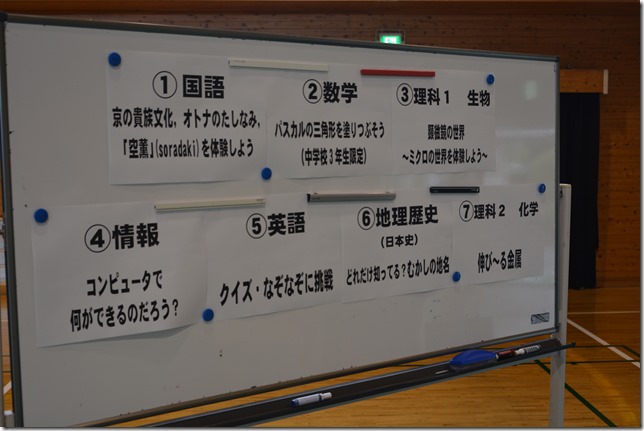 ①国語
京の貴族文化，オトナのたしなみ，
「空薫」(soradaki)を体験しよう
②数学
パスカルの三角形を塗りつぶそう
(中学校３年生限定)
③理科１　生物
顕微鏡の世界
～ミクロの世界を体験しよう～
④情報
コンピュータで
何ができるのだろう？
⑤英語
クイズ・なぞなぞに挑戦
⑥地理歴史
(日本史)
どれだけ知ってる？むかしの地名
⑦理科２　化学
伸び～る金属